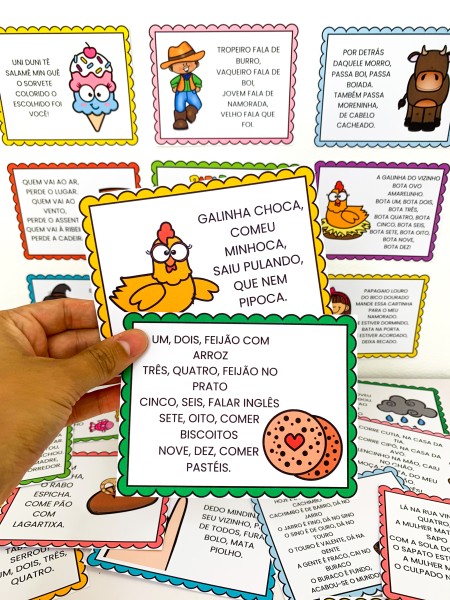 UNI DUNI TÊ
SALAMÊ MIN GUÊ
O SORVETE
COLORIDO O
ESCOLHIDO FOI
VOCÊ!
TROPEIRO FALA DE
BURRO,
VAQUEIRO FALA DE
BOI,
JOVEM FALA DE
NAMORADA,
VELHO FALA QUE
FOI.
POR DETRÁS
DAQUELE MORRO,
PASSA BOI, PASSA
BOIADA.
TAMBÉM PASSA
MORENINHA,
DE CABELO
CACHEADO.
QUEM VAI AO AR,
PERDE O LUGAR.
QUEM VAI AO
VENTO,
PERDE O ASSENT
QUEM VAI À RIBEI
PERDE A CADEIR
GALINHA CHOCA,
COMEU
MINHOCA,
SAIU PULANDO,
QUE NEM
PIPOCA.
A GALINHA DO VIZINHO
BOTA OVO
AMARELINHO.
BOTA UM, BOTA DOIS,
BOTA TRÊS,
BOTA QUATRO, BOTA
CINCO, BOTA SEIS,
BOTA SETE, BOTA OITO,
BOTA NOVE,
BOTA DEZ!
PAPAGAIO LOURO
DO BICO DOURADO
MANDE ESSA CARTINHA
PARA O MEU
NAMORADO.
E ESTIVER DORMINDO,
BATA NA PORTA
ESTIVER ACORDADO,
DEIXA RECADO.
UM, DOIS, FEIJÃO COM
ARROZ
TRÊS, QUATRO, FEIJÃO NO
PRATO
CINCO, SEIS, FALAR INGLÊS
SETE, OITO, COMER
BISCOITOS
NOVE, DEZ, COMER
PASTÉIS.
CORRE CUTIA, NA CASA DA
TIA.
CORRE CIPÓ, NA CASA DA
AVÓ.
LENCINHO NA MÃO, CAIU
NO CHÃO.
O RABO
ESPICHA.
COME PÃO
COM
LAGARTIXA.
UM, DOIS, TRÊS,
QUATRO.
DEDO MINDIN
SEU VIZINHO, P
DE TODOS, FURA
BOLO, MATA
PIOLHO.
CACHIMBO
CACHIMBO É DE BARRO, DÁ NO
JARRO
O JARRO É FINO, DÁ NO SINO
O SINO É DE OURO, DÁ NO
TOURO
O TOURO É VALENTE, DÁ NA
GENTE
A GENTE É FRACO, CAI NO
BURACO
O BURACO É FUNDO,
ACABOU-SE O MUNDO
LÁ NA RUA VIN
QUATRO,
A MULHER MAT
SAPO
COM A SOLA DO
O SAPATO ESTA
A MULHER
O CULPADO N